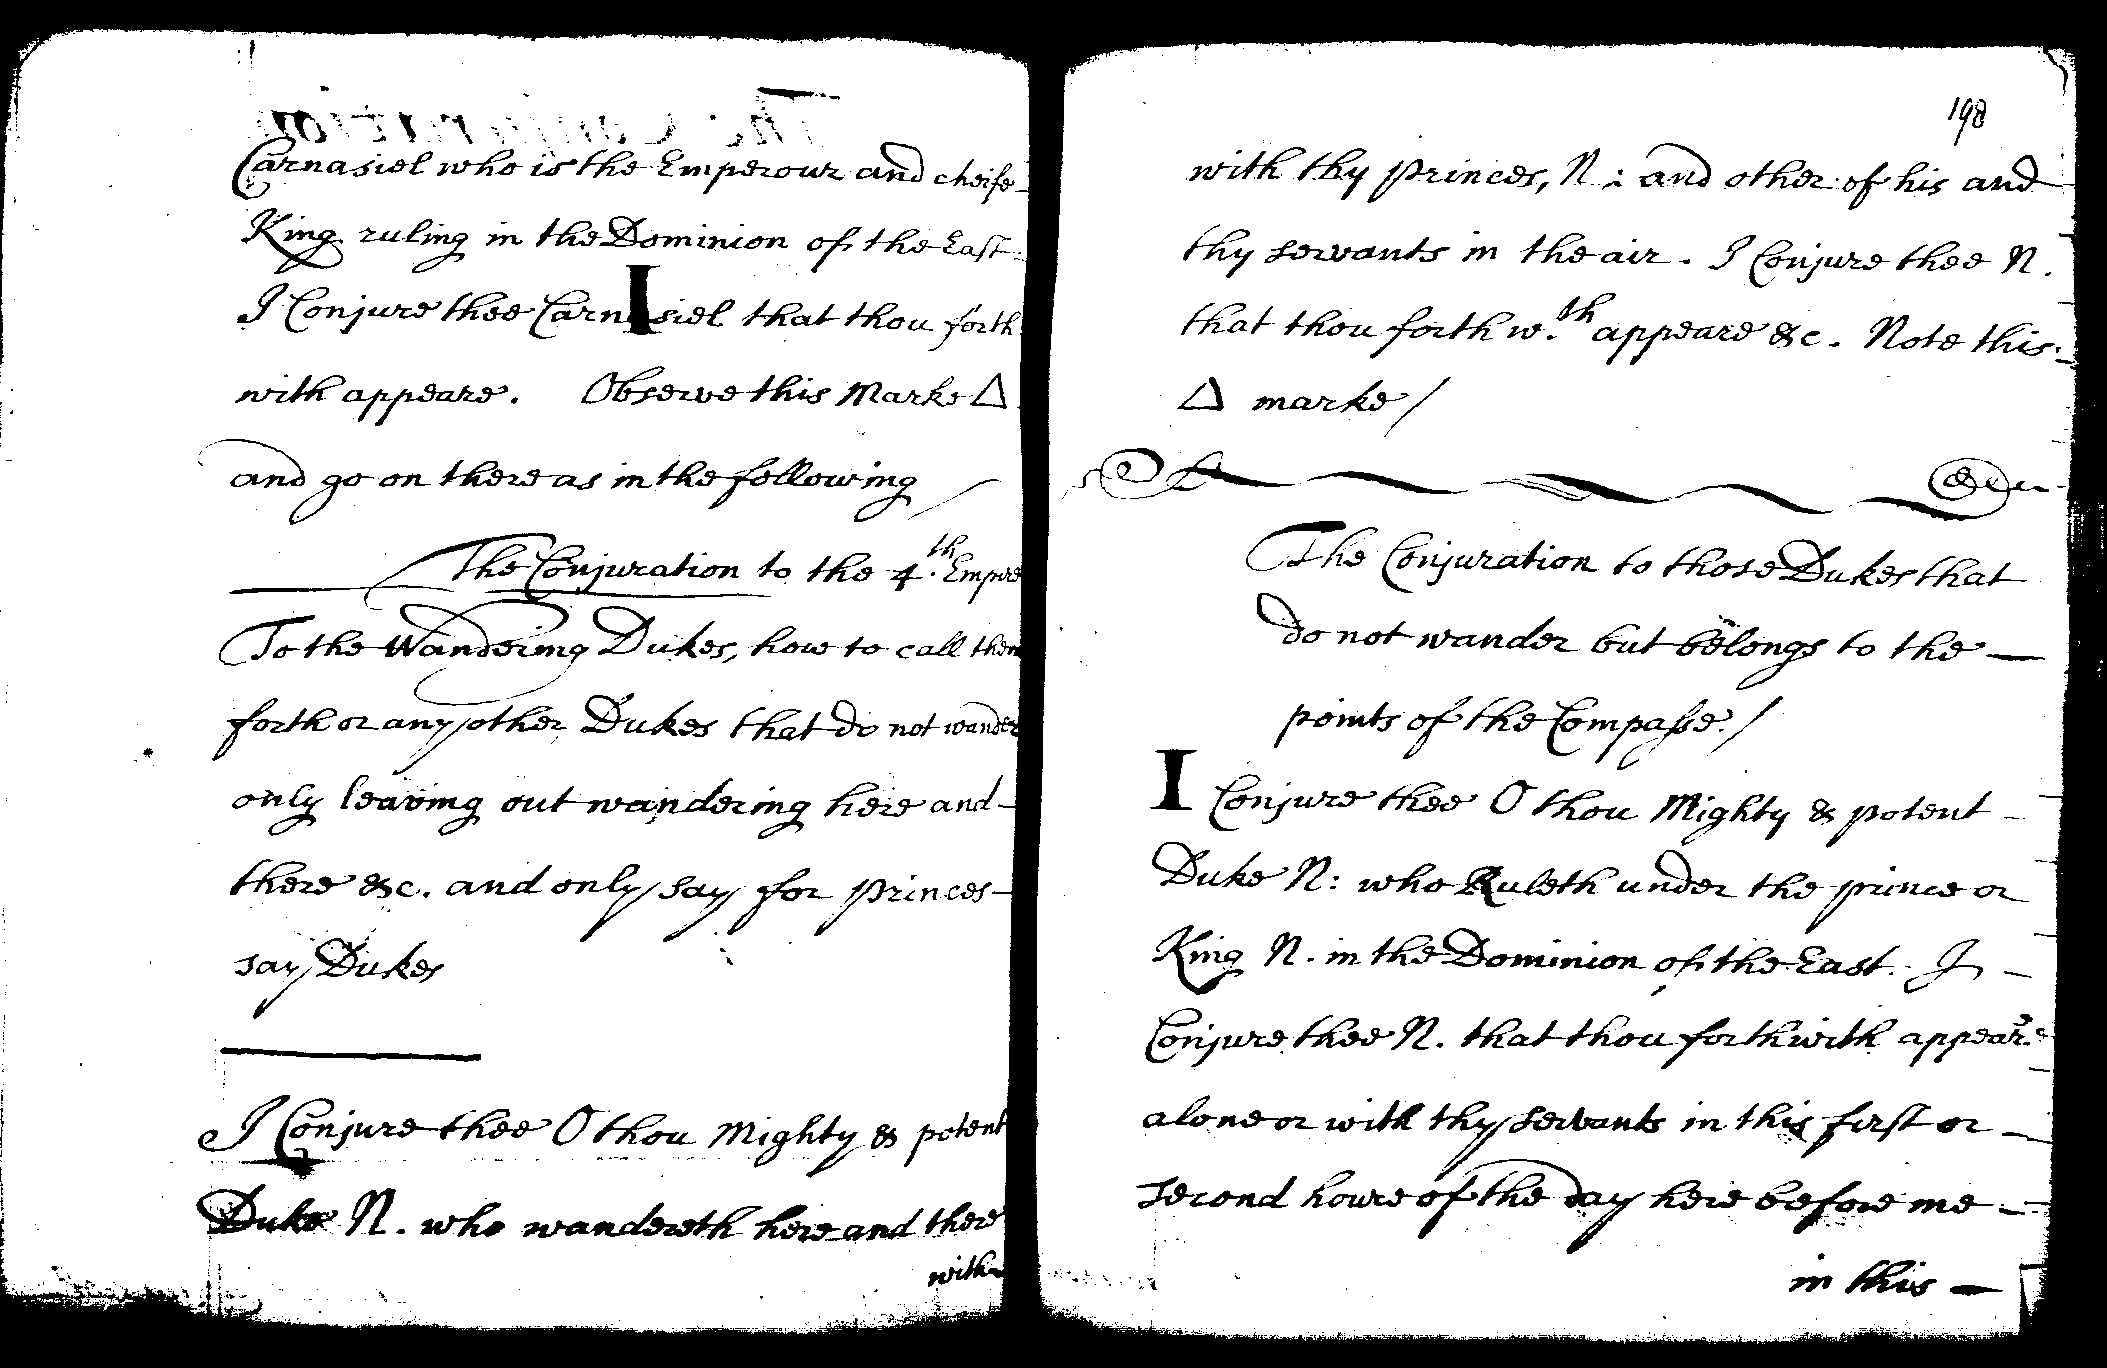 Carnasiel who is the Emperour and cheife
King ruling in the Dominion of the East
I Conjure thee Carnasiel that thou forth
with appeare. Observe this Marke △
and go on there as in the following
The Conjuration to the 4.th Empire
To the Wandering Dukes, how to call them
forth or any other Dukes that do not wander
only leaving out wandering here and
there &c. and only say for princes
say Dukes
I Conjure thee O thou Mighty & potent
Duke N. who wandereth here and there
with
198
with thy princes, N: and other of his and
thy servants in the air. I Conjure thee N.
that thou forth w.th appeare &c. Note this
△ marke /
The Conjuration to those Dukes that
do not wander but belongs to the —
points of the Compasse. /
I Conjure thee O thou Mighty & potent
Duke N: who Ruleth under the prince or
King N. in the Dominion of the East. I
Conjure thee N. that thou forthwith appeare
alone or with thy servants in this first or
second houre of the day here before me
in this —